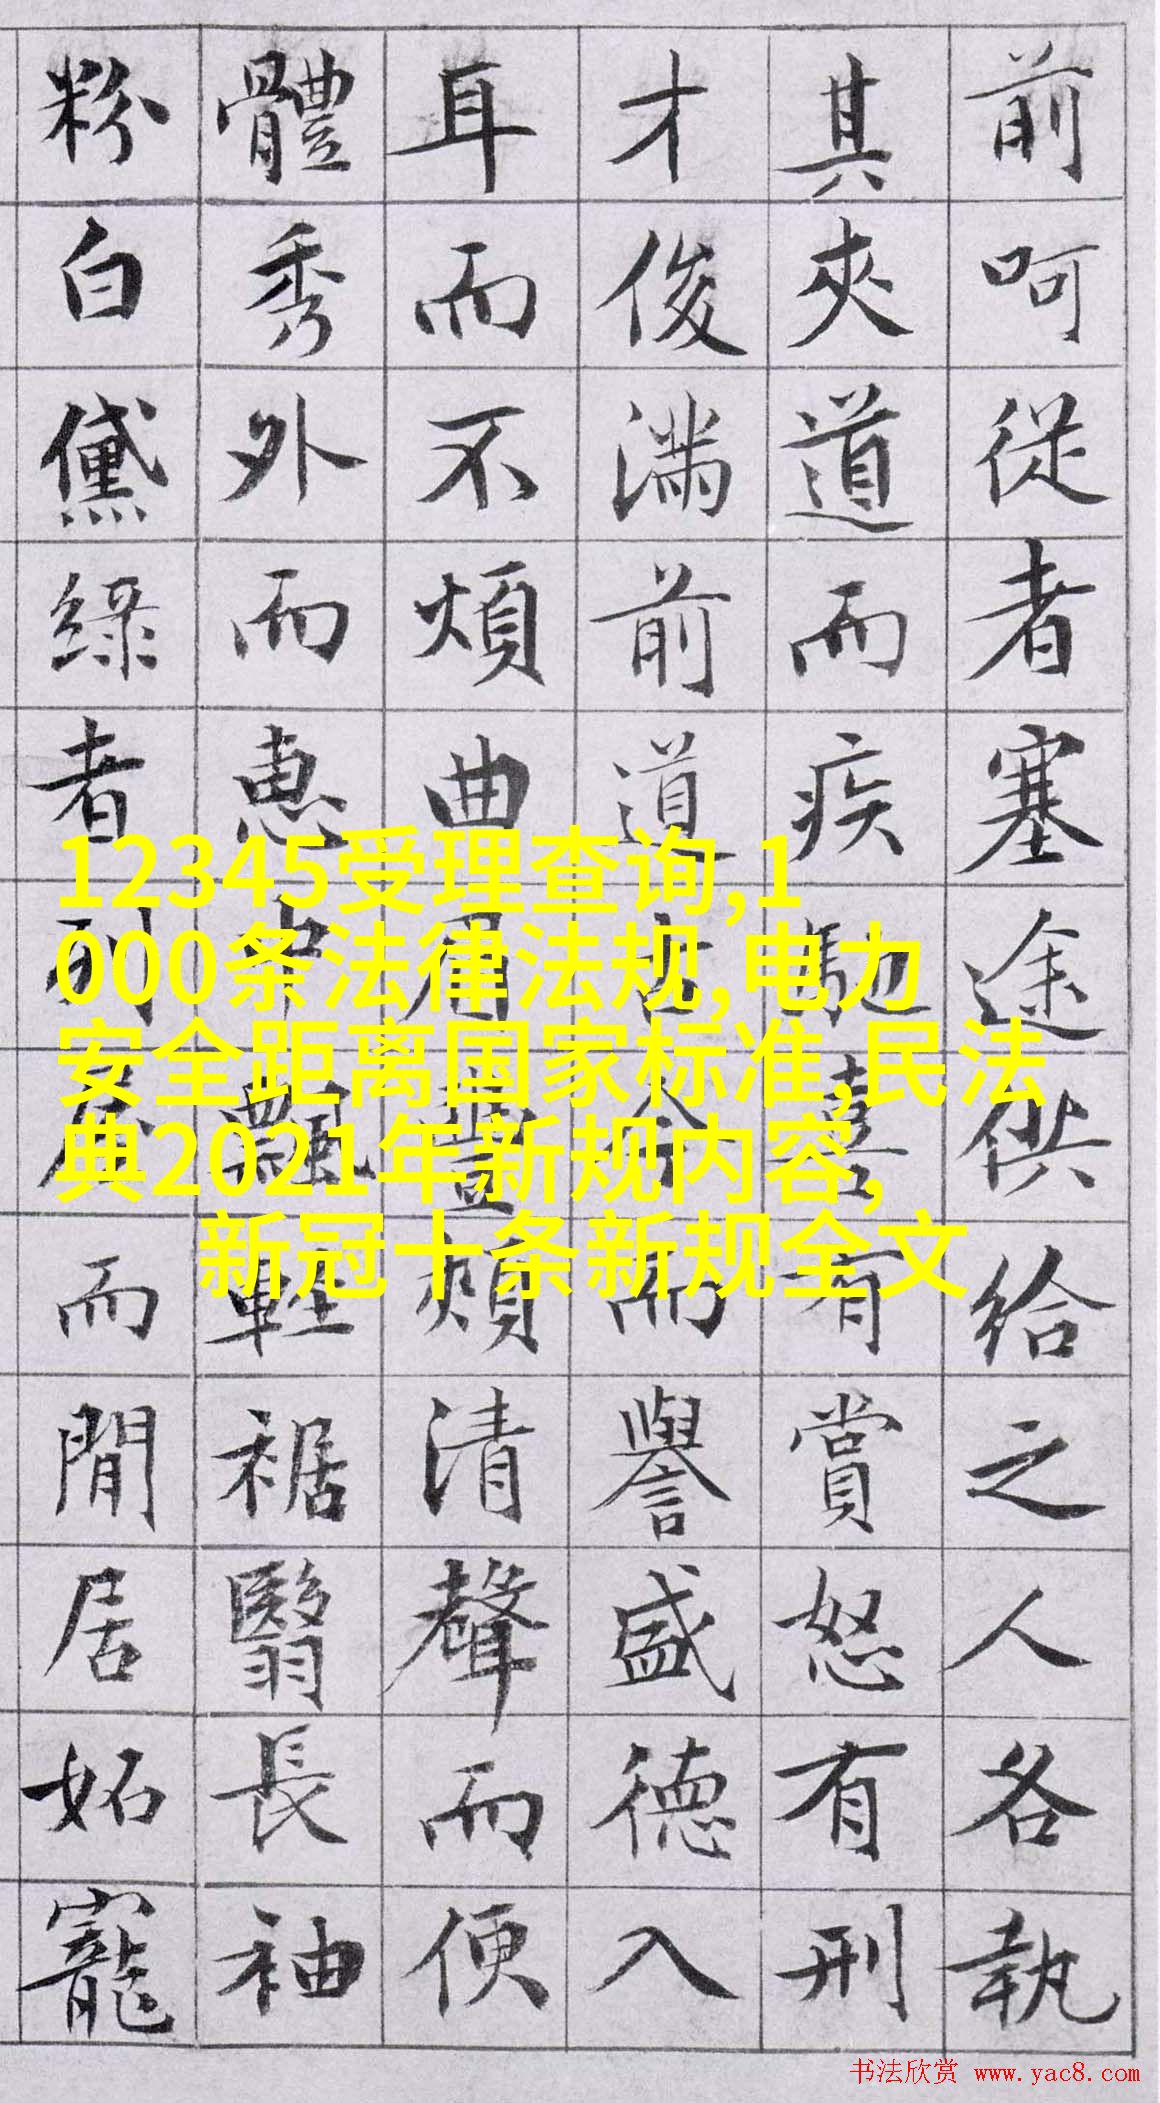 前呵從者塞途供給之人各執
其夾道而疾馳喜有賞怒有刑
才俊满前道古今而譽盛徳入
耳而不煩曲眉豐頰清聲而便
體秀外而恵中飄輕裾翳長袖
粉白黛緑者列屋而閒居妬寵
12345受理查询,1
000条法律法规,电力
安全距离国家标准,民法
典2021年新规内容,
新冠十条新规全文
书法欣赏 www.yac8.com